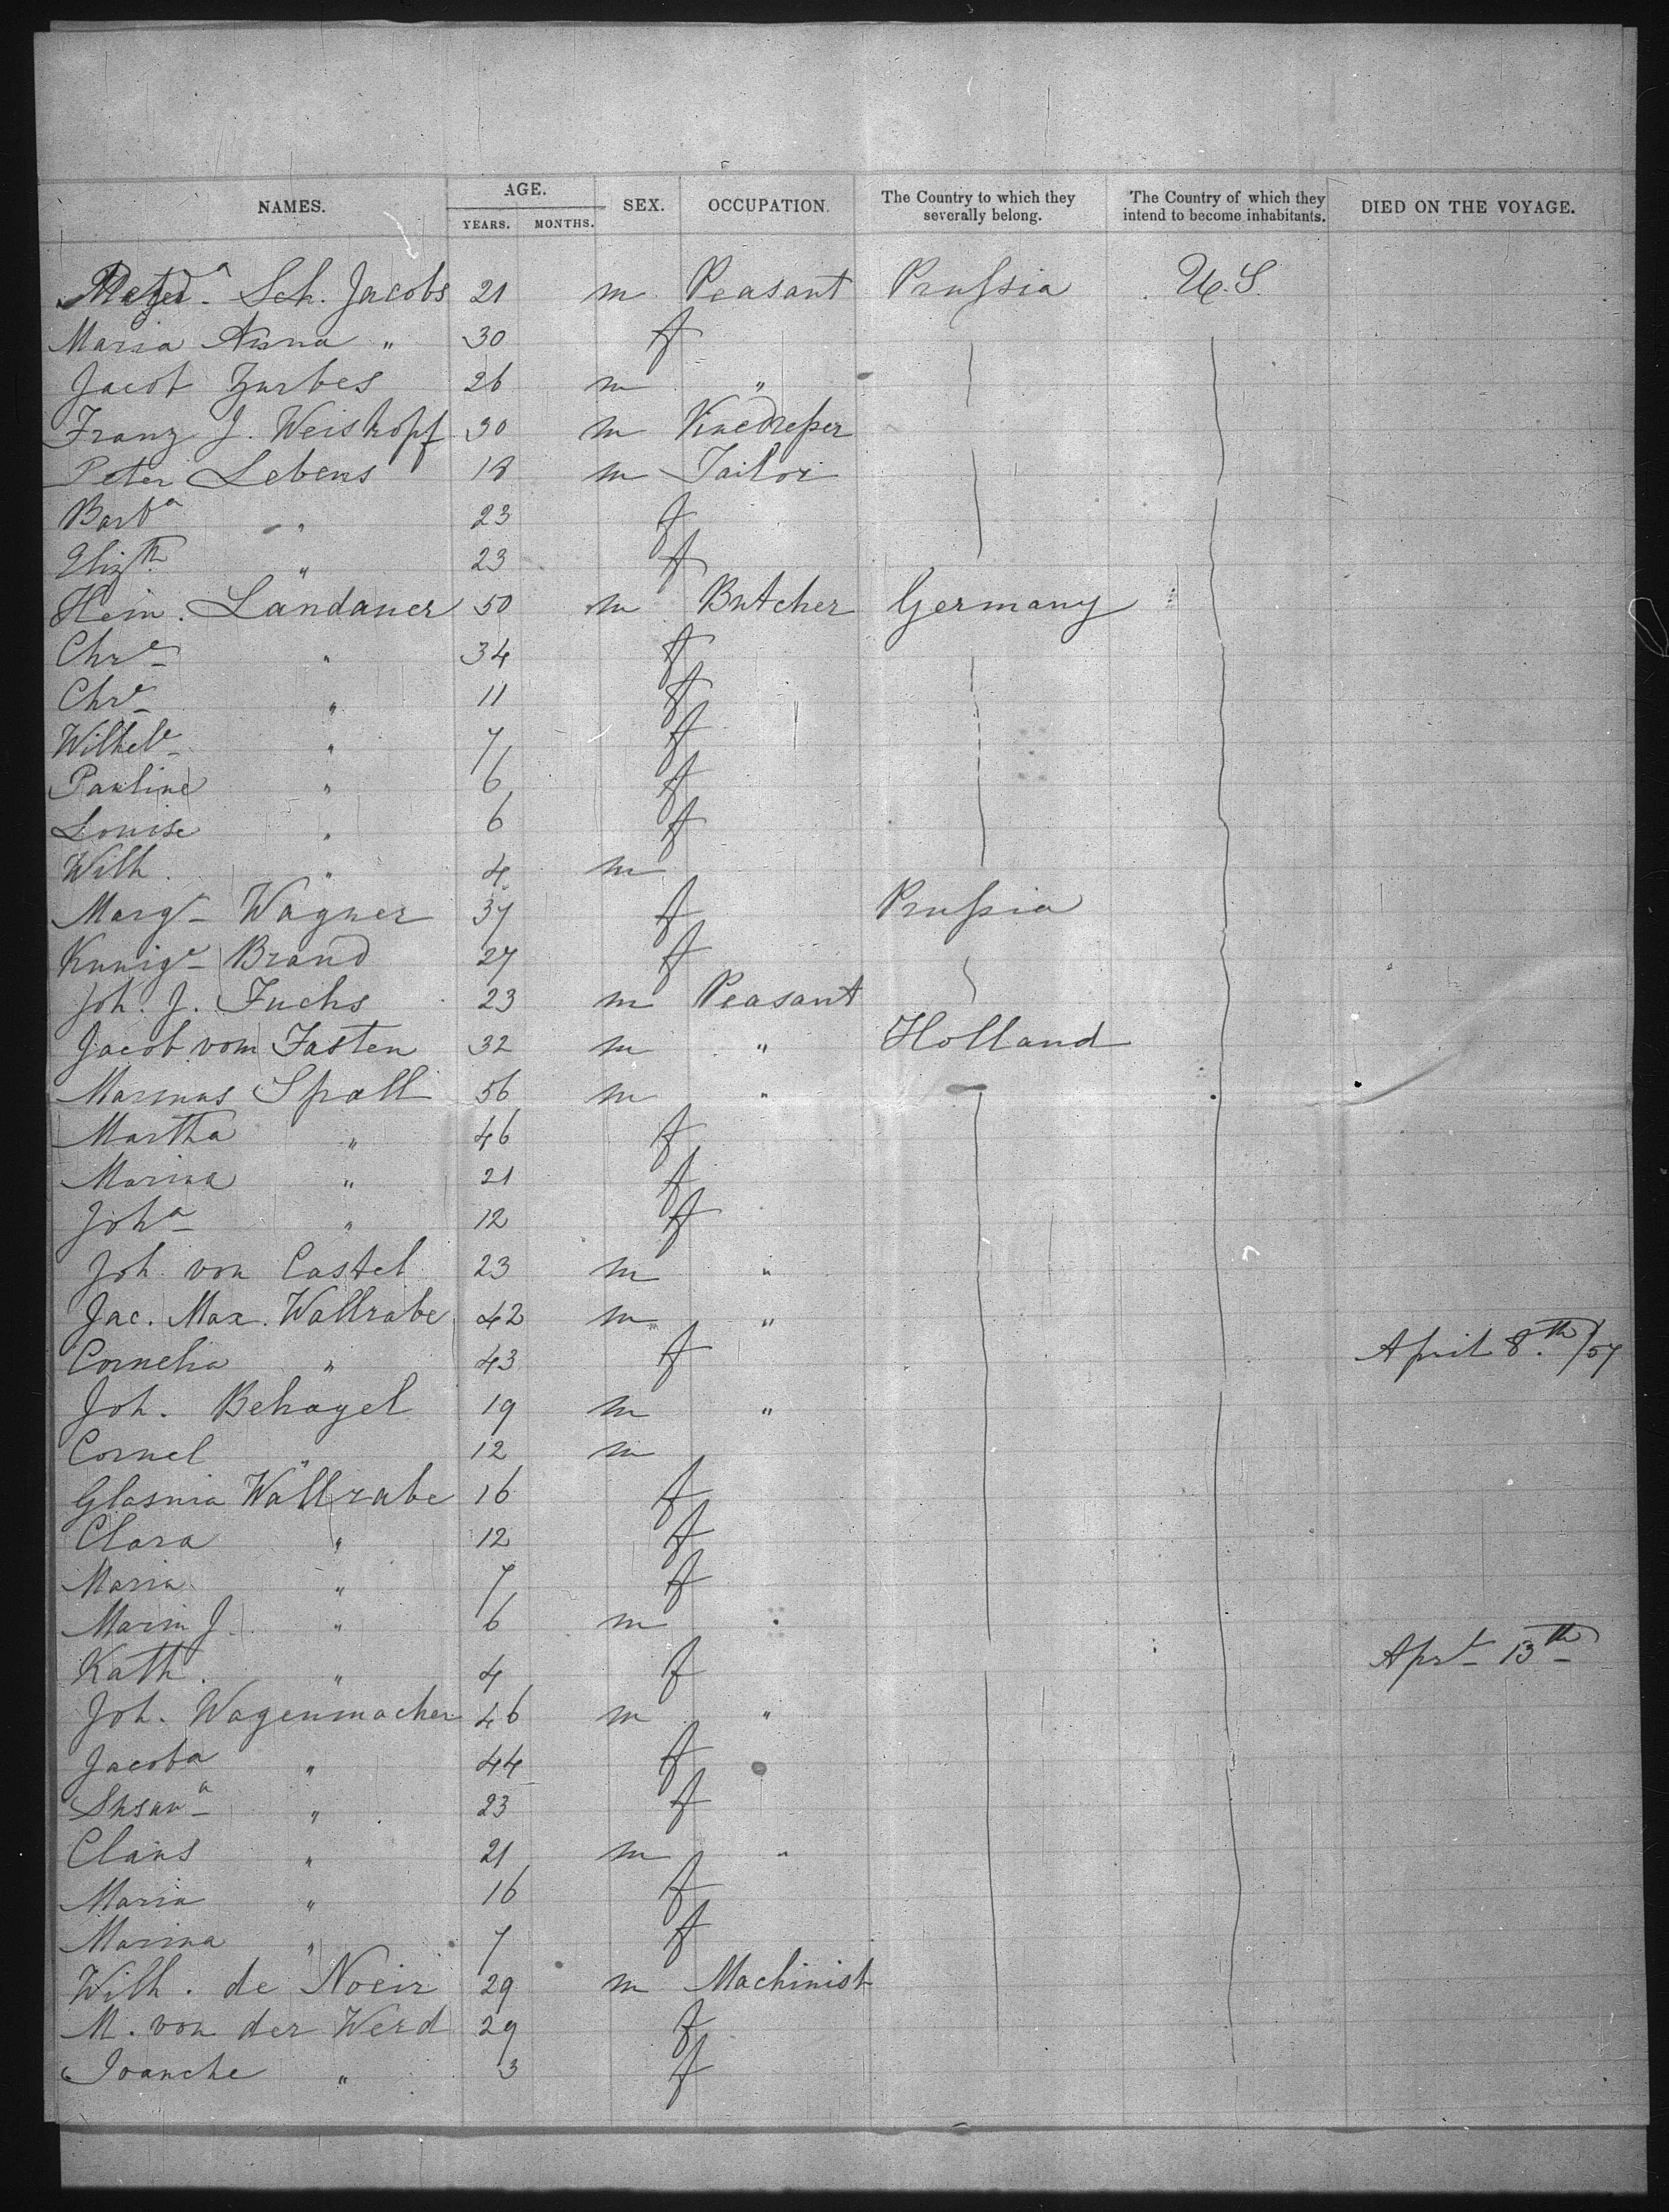 NAMES. AGE. YEARS. MONTHS. SEX. OCCUPATION. The Country to which they severally belong. The Country of which they intend to become inhabitants. DIED ON THE VOYAGE.
Sch. Jacobs 21 m Peasant Prussia U.S.
Maria Anna " 30 f
Jacob Zurbes 26 m "
Franz J. Weiskopf 30 m Vinedresser
Peter Lebens 18 m Tailor
Barba " 23 f
Elizth " 23 f
Hein. Landauer 50 m Butcher Germany
Chre " 34 f
Chre " 11 f
Wilhele " 7 f
Pauline " 6 f
Louise " 6 f
Wilh. " 4 m
Margt Wagner 37 f Prussia
Kunige Brand 27 f
Joh. J. Fuchs 23 m Peasant
Jacob vom Fasten 32 m " Holland
Marinus Spall 56 m "
Martha " 46 f
Marina " 21 f
Joha " 12 f
Joh. von Castel 23 m "
Jac. Max. Wallrabe 42 m "
Cornelia " 43 f April 8th/57
Joh. Behagel 19 m "
Cornel " 12 m
Glasnia Wallrabe 16 f
Clara " 12 f
Maria " 7 f
Marin J. " 6 m
Kath. " 4 f Aprl 13th
Joh. Wagenmacher 46 m "
Jacoba " 44 f
Susana " 23 f
Claus " 21 m "
Maria " 16 f
Marina " 7 f
Wilh. de Noeir 29 m Machinist
M. von der Werd 29 f
Joanche " 3 f